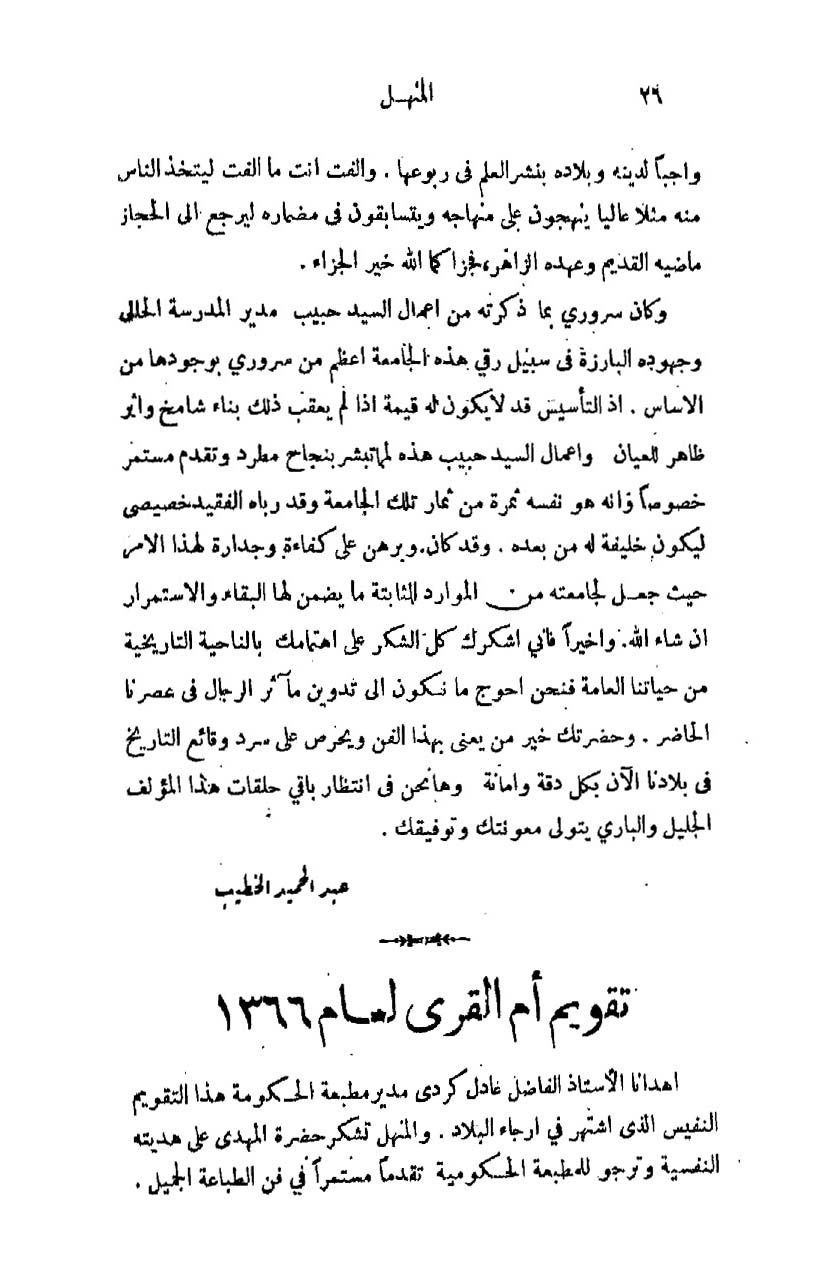 ٢٦ المنهل
واجباً لدينه وبلاده بنشر العلم فى ربوعها . والفت انت ما الفت ليتخذ الناس
منه مثلا عاليا ينهجون على منهاجه ويتسابقون فى مضماره ليرجع الى الحجاز
ماضيه القديم وعهده الزاهر، فجزاكما الله خير الجزاء .
وكان سروري بما ذكرته من اعمال السيد حبيب مدير المدرسة الحالى
وجهوده البارزة فى سبيل رقي هذه الجامعة اعظم من سروري بوجودها من
الاساس . اذ التأسيس قد لايكون له قيمة اذا لم يعقب ذلك بناء شامخ واثر
ظاهر للعيان واعمال السيد حبيب هذه لما تبشر بنجاح مطرد وتقدم مستمر
خصوصاً وانه هو نفسه ثمرة من ثمار تلك الجامعة وقد رباه الفقيد خصيصى
ليكون خليفة له من بعده . وقد كان . وبرهن على كفاءة وجدارة لهذا الامر
حيث جعل لجامعته من الموارد الثابتة ما يضمن لها البقاء والاستمرار
ان شاء الله. واخيراً فاني اشكرك كل الشكر على اهتمامك بالناحية التاريخية
من حياتنا العامة فنحن احوج ما نكون الى تدوين مآثر الرجال فى عصرنا
الحاضر . وحضرتك خير من يعنى بهذا الفن ويحرص على سرد وقائع التاريخ
فى بلادنا الآن بكل دقة وامانة وهانحن فى انتظار باقي حلقات هذا المؤلف
الجليل والباري يتولى معونتك وتوفيقك .
عبد الحميد الخطيب
تقويم أم القرى لعام ١٣٦٦
اهدانا الأستاذ الفاضل عادل كردى مدير مطبعة الحكومة هذا التقويم
النفيس الذى اشتهر في ارجاء البلاد . والمنهل تشكر حضرة المهدى على هديته
النفسية وترجو للمطبعة الحكومية تقدماً مستمراً في فن الطباعة الجميل .